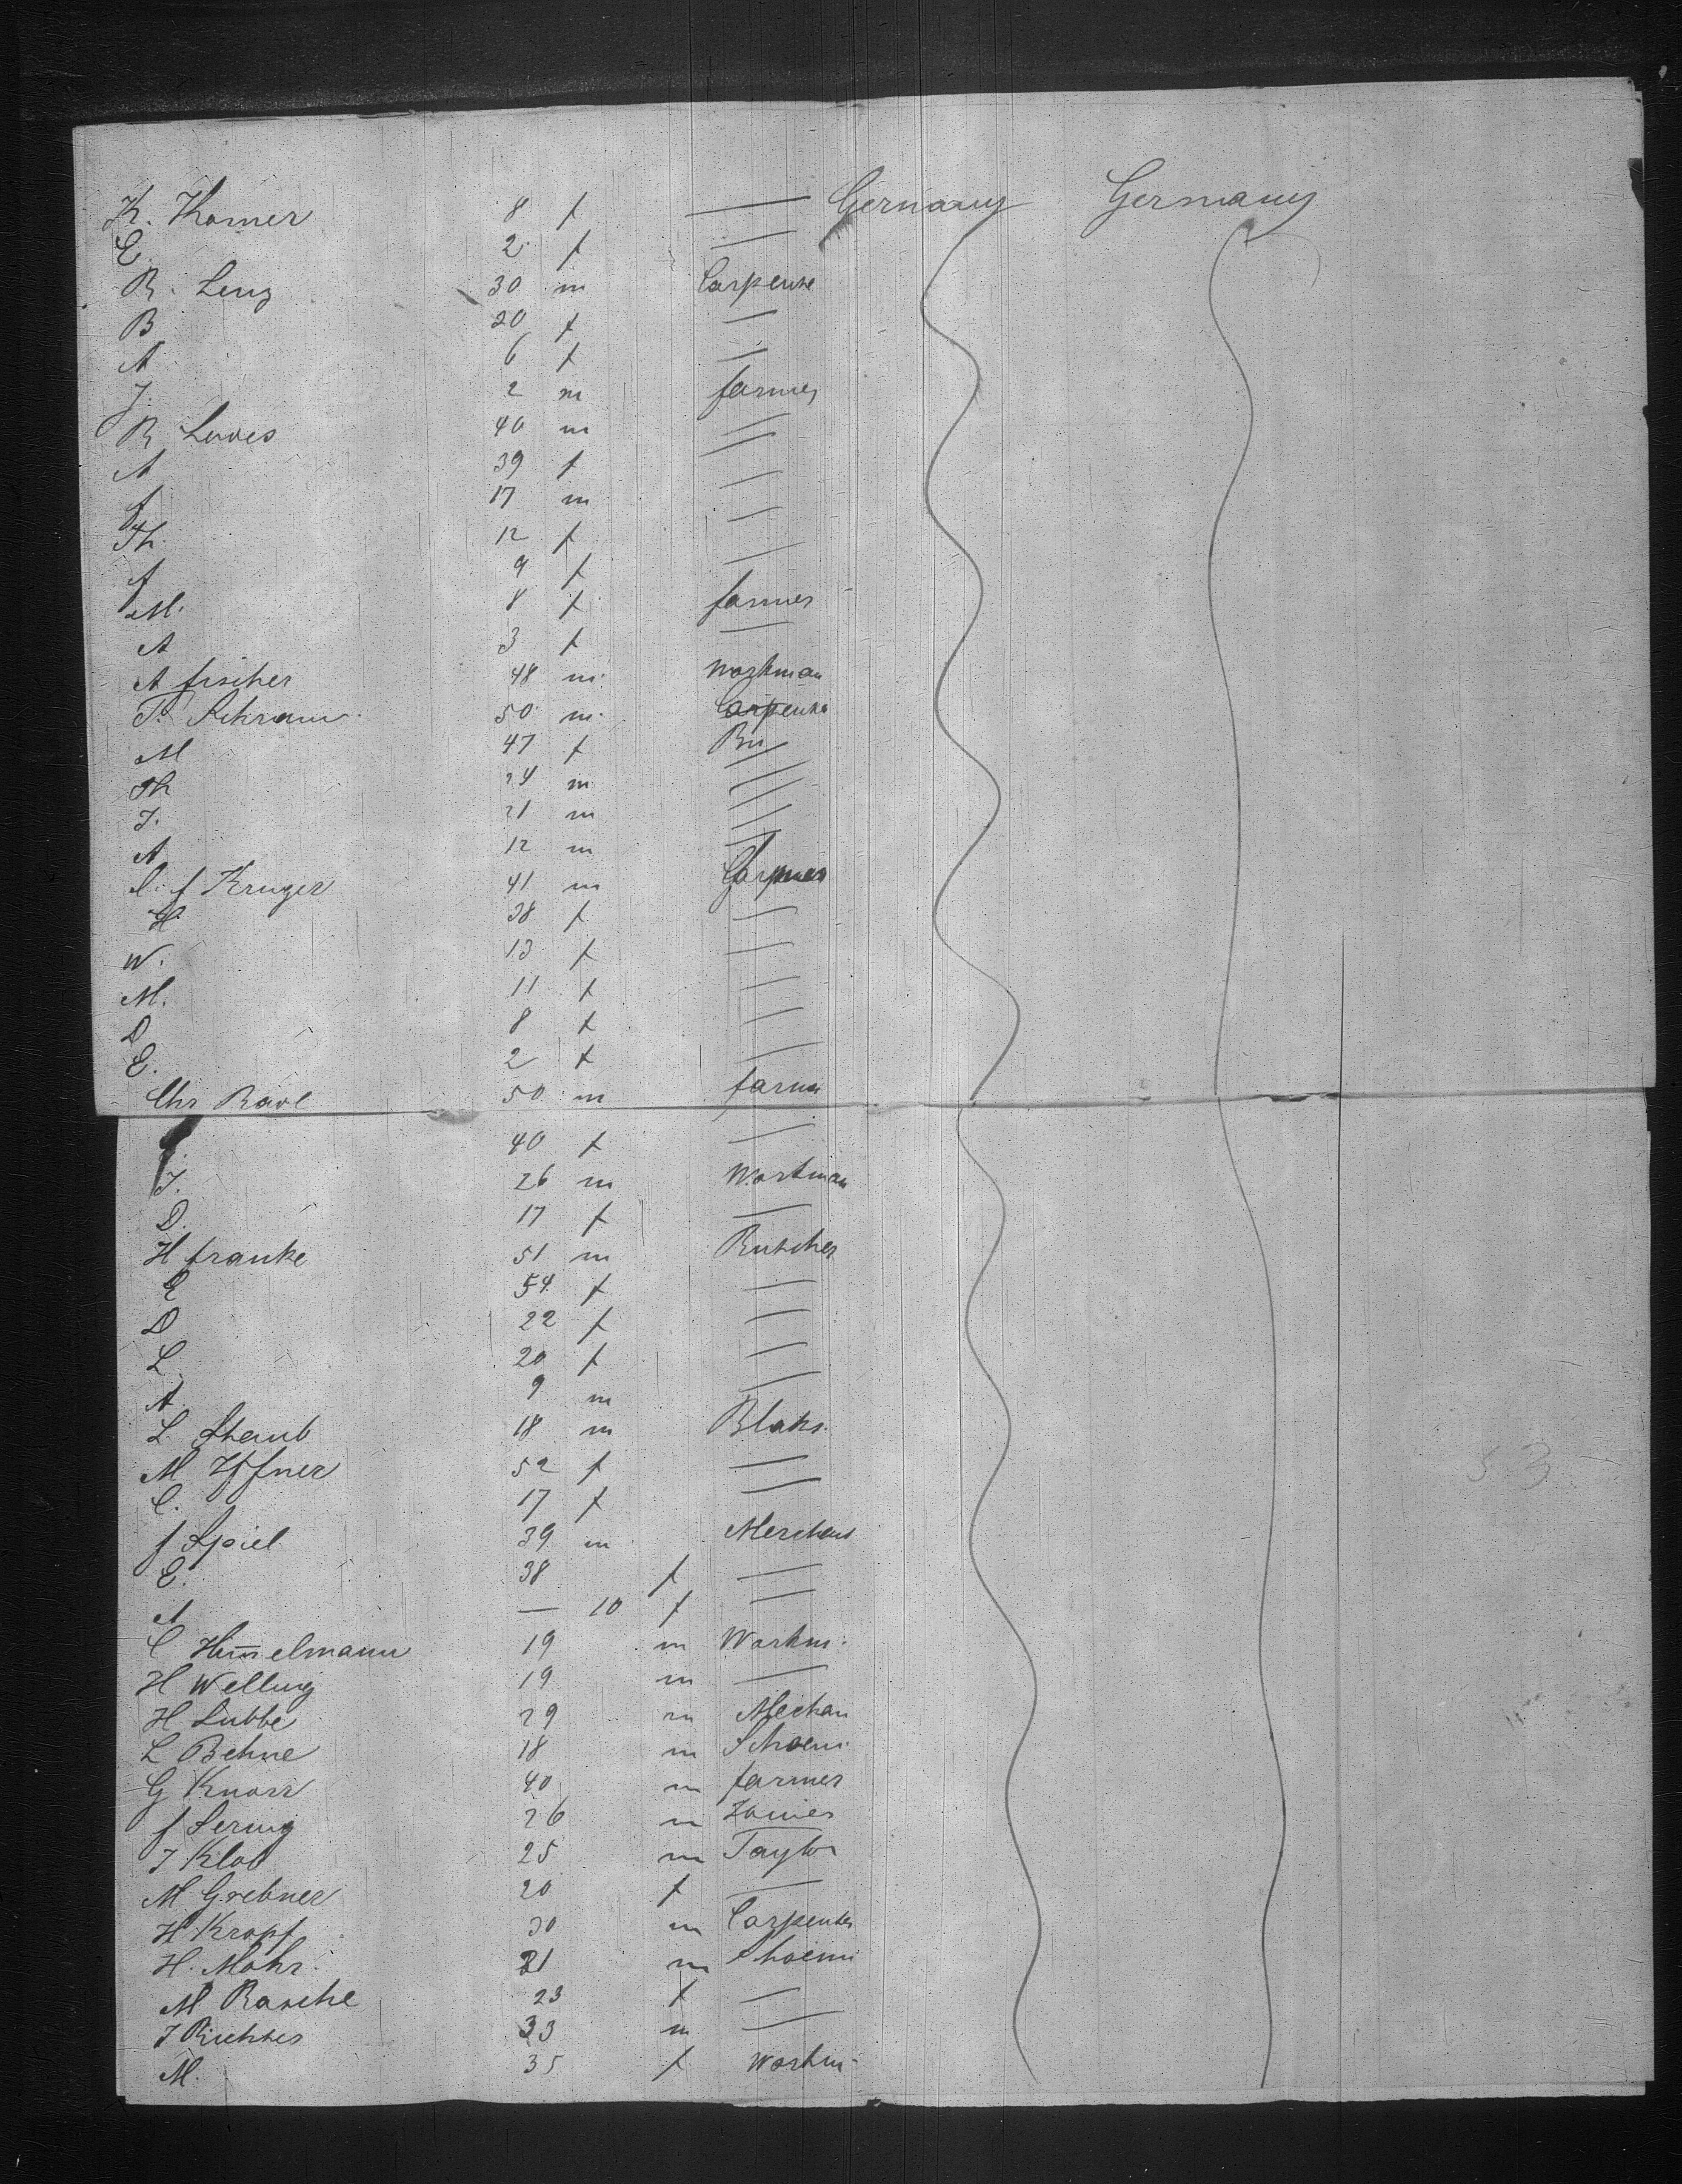 K. Korner 8 f — Germany Germany
E. 2 f —
R. Lenz 30 m Carpente
B 20 f —
A 6 f —
J. 2 m farmer
R Loves 40 m —
A 39 f —
f 17 m —
Th. 12 f —
f 9 f —
M. 8 f farmer
A 3 f —
A fischer 48 m. Workman
P. Schram 50 m. Carpenter
M 47 f
Th 24 m —
J. 21 m —
A 12 m —
f Kruger 41 m
H 38 f —
W. 13 f —
M. 11 f —
D 8 f —
E. 2 f —
Chr Rave 50 m farm
40 f —
J. 26 m Workman
D. 17 f —
H franke 51 m Butcher
E 54 f —
D 22 f —
L 20 f —
A 9 m —
L. Staub 18 m Blaks.
M Iffner 52 f —
C. 17 f —
f Spiel 39 m Merchant
E. 38 f —
A — 10 f —
C Him̅elmann 19 m Workm.
H Welling 19 m —
H Lubbe 29 m Mechan
L Behne 18 m Schoem
G Knorr 40 m farmer
f Sering 26 m
J Klob 25 m Taylor
M Grebner 20 f —
H Kropf 30 m Carpenter
H. Mohr. 21 m Shoem
M Rasche 23 f —
J Richter 33 m —
M. 35 f Workm.
53